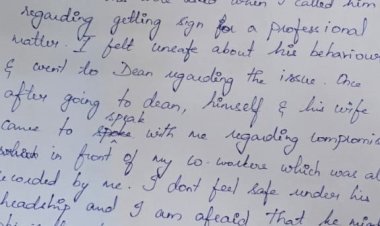 when I called him
regarding getting sign for a professional
matter. I felt unsafe about his behaviour
& went to Dean regarding the issue. Once
after going to dean, himself & his wife
came to speak with me regarding compromis
which in front of my co-workers which was al
ecorded by me. I dont feel safe under his
headship and I am afraid that he mig